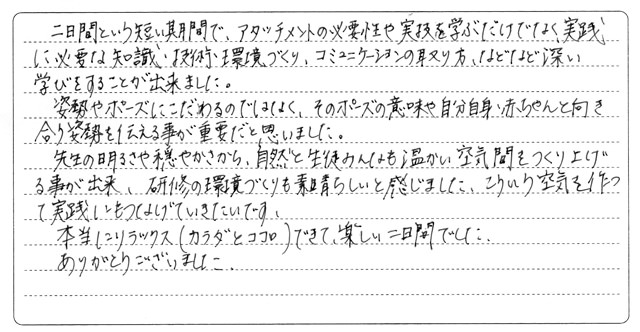 二日間という短い期間で、アタッチメントの必要性や実技を学ぶだけでなく実践
に必要な知識・技術・環境づくり、コミュニケーションの取り方、などなど深い
学びをすることが出来ました。
姿勢やポーズにこだわるのではなく、そのポーズの意味や自分自身・赤ちゃんと向き
合う姿勢を伝える事が重要だと思いました。
先生の明るさや穏やかさから、自然と生徒みんなも温かい空気間をつくり上げ
る事が出来、研修の環境づくりも素晴らしいと感じました。こういう空気を作っ
て実践にもつなげていきたいです。
本当にリラックス(カラダとココロ)できて、楽しい二日間でした。
ありがとうございました。